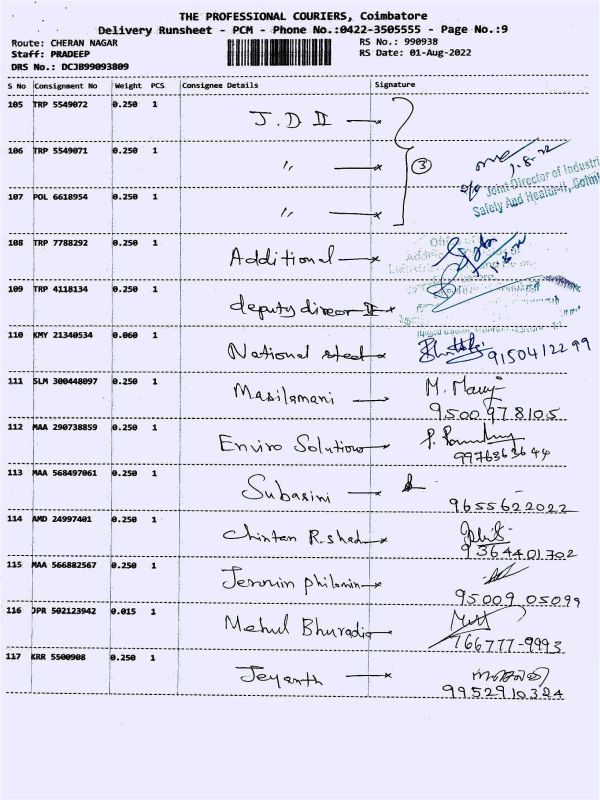 THE PROFESSIONAL COURIERS, Coimbatore
Delivery Runsheet - PCM - Phone No.:0422-3505555 - Page No.:9
Route: CHERAN NAGAR
RS No.: 990938
Staff: PRADEEP
RS Date: 01-Aug-2022
DRS No.: DCJB99093809
S No Consignment No Weight PCS Consignee Details Signature
105 TRP 5549072 0.250 1 J.D II
106 TRP 5549071 0.250 1 〃 3
1.8.22
Joint Director of Industri
Safety And Health-II, Coim
107 POL 6618954 0.250 1 〃
108 TRP 7788292 0.250 1 Additional
1.8.22
109 TRP 4118134 0.250 1 deputy direcor II
110 KMY 21340534 0.060 1 National steel 9150412299
111 SLM 300448097 0.250 1 Masilamani M. Mani
9500978105
112 MAA 290738859 0.250 1 Enviro Solutions
9976363644
113 MAA 568497061 0.250 1 Subasini
9655622022
114 AMD 24997401 0.250 1 Chintan R.shah
9364401702
115 MAA 566882567 0.250 1 Jermin philomin
95009 05099
116 JPR 502123942 0.015 1 Mehul Bhuradia
766777-9993
117 KRR 5500908 0.250 1 Jeyanth
9952910324